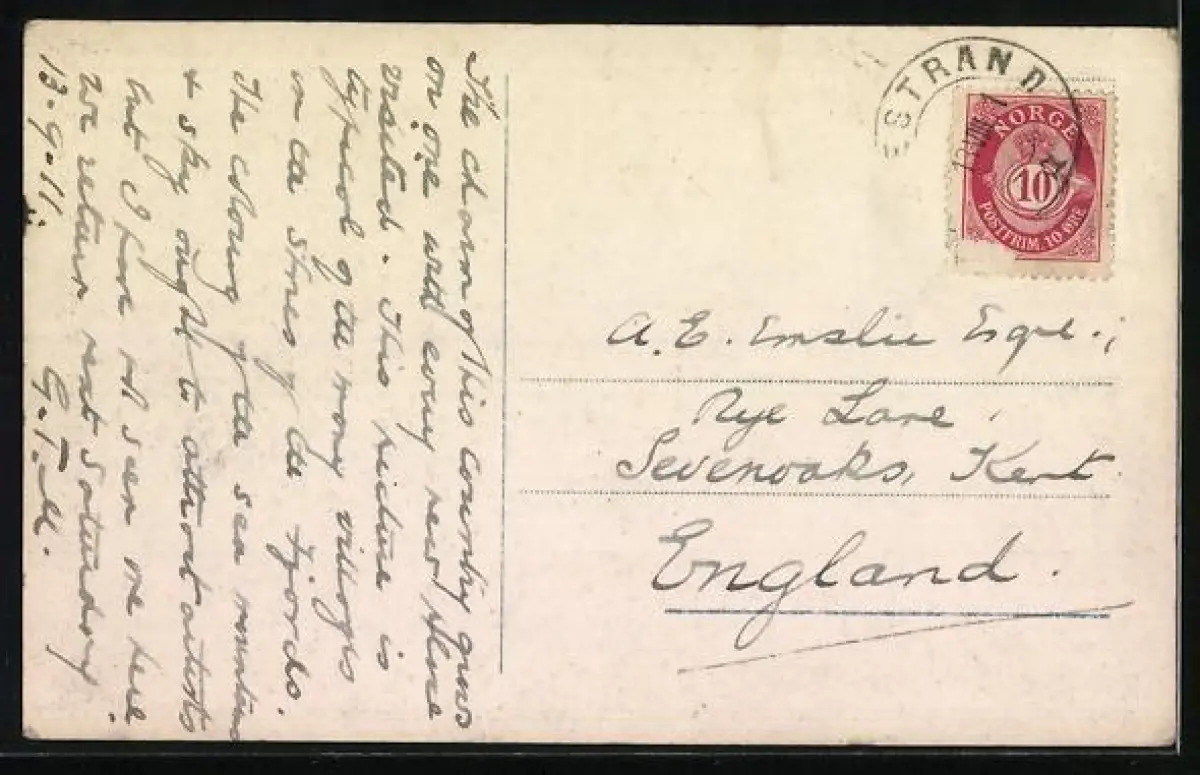 The charm of this country grows
on one with every new place
visited. This picture is
typical of the many villages
in the shores of the fjords.
The colouring of the sea mountains
& sky ought to attract artists
but I have not seen one here.
We return next Saturday
13.9.11. G.T.M.
STRAND
NORGE
10
POSTFRIM. 10 ØRE
A. E. Emslie Esqre.,
Rye Lane,
Sevenoaks, Kent.
England.